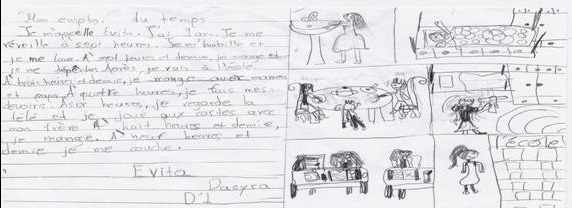 Mon emploi du temps
Je m'appelle Evita. J'ai 9 an. Je me
réveille a sept heures. Je m'habille et
je me lave. A sept heures et demie, je mange et
je me dépêche. Après, je vais à l'école.
A trois heures et demie, je mange avec maman
et papa. A quatre heures, je fais mes
devoirs. A six heures, je regarde la
télé et je joue aux cartes avec
mon frère. A huit heures et demie,
je mange. A neuf heures et
demie je me couche.
Evita
Dasyra
D'1
l'école